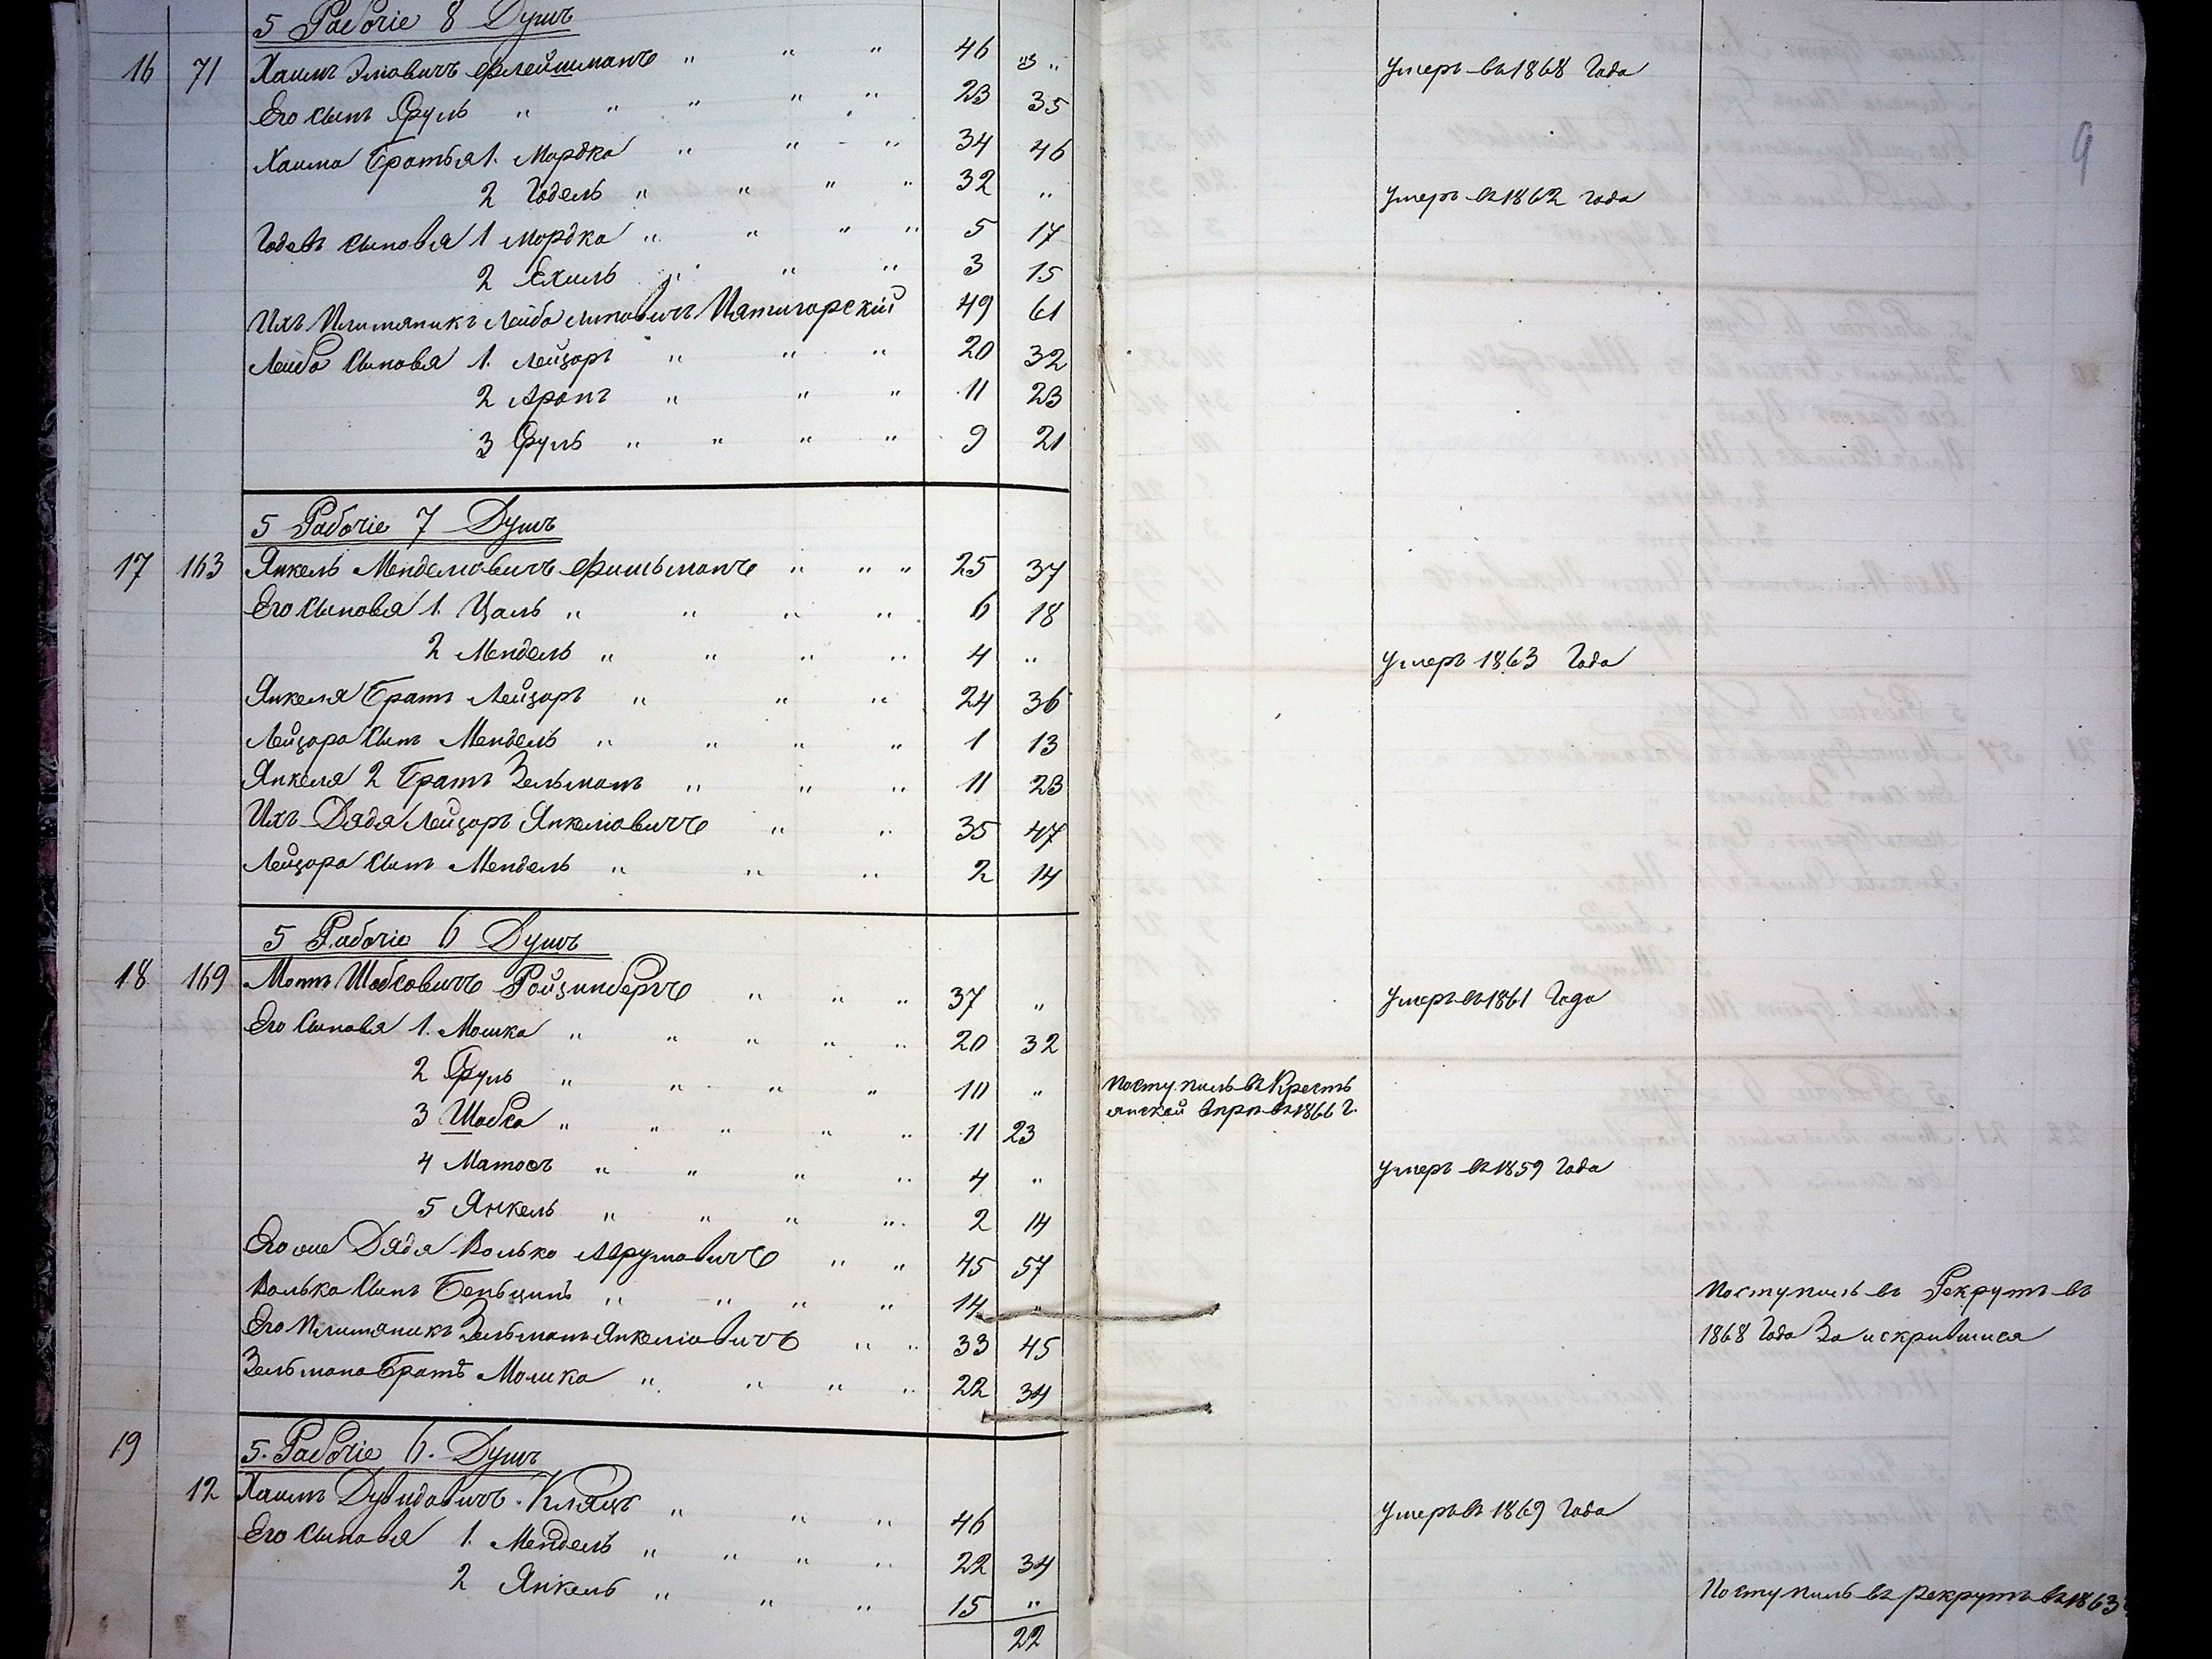 5 Рабочіе 8 Душъ
16 71 Хаимъ Эліовичъ Флейшманъ " " " 46 " умеръ въ 1868 Года
Его сынъ Сруль " " " " " 23 35
Хаима Братья 1. Мордка " " " 34 46
2 Годель " " " " 32 " умеръ въ 1862 года
Годель сыновья 1 Мордка " " " " 5 17
2 Ехиль " " " 3 15
Ихъ Племяникъ Лейба Пятигорскій 49 61
Лейба Сыновья 1. Лейзоръ " " " 20 32
2 Аронъ " " " 11 23
3 Сруль " " " " 9 21
5 Рабочіе 7 Душъ
17 163 Янкель Менделіовичъ Фишьманъ " " " 25 37
Его Сыновья 1. Цаль " " " " 6 18
2 Мендель " " " " 4 " умеръ 1863 Года
Янкеля Братъ Лейзоръ " " " 24 36
Лейзора Сынъ Мендель " " " " 1 13
Янкеля 2 Братъ Зельманъ " " " 11 23
Ихъ Дядя Лейзоръ Янкеліовичъ " " 35 47
Лейзора Сынъ Мендель " " " 2 14
5 Рабочіе 6 Душъ
18 169 Мотъ Шабсовичъ Ройзинберъ " " " 37 " умеръ въ 1861 Года
Его Сыновья 1. Мошка " " " " " 20 32
2 Сруль " " " " 10 " Поступилъ въ Кресть
янской въ 1866 г.
3 Шабса " " " " " 11 23
4 Матосъ " " " " 4 " умеръ въ 1859 Года
5 Янкель " " " " 2 14
Его же Дядя Волько Аврумовичъ " " 45 57
Волька Сынъ Беньцинъ " " " " 14 " Поступилъ въ Рекрутъ въ
Его Племяникъ Зельманъ Янкеліовичъ " " 33 45 1868 Года За искрившися
Зельмана Братъ Мошка " " " " 22 34
19 5. Рабочіе 6. Душъ
12 Хаимъ Дувидовичъ Кляцъ " " " 46 умеръ въ 1869 Года
Его Сыновья 1. Мендель " " " " 22 34
2 Янкель " " " 15 " Поступилъ въ рекрутъ въ 1863
22
9